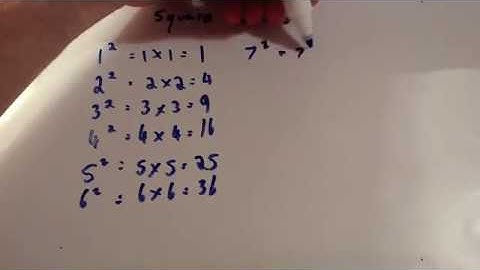 Square
1² = 1 x 1 = 1
2² = 2 x 2 = 4
3² = 3 x 3 = 9
4² = 4 x 4 = 16
5² = 5 x 5 = 25
6² = 6 x 6 = 36
7² = 7